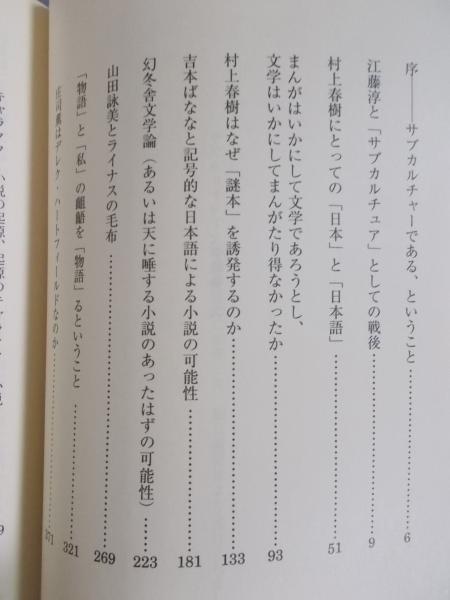 序――サブカルチャーである、ということ……………………6
江藤淳と「サブカルチュア」としての戦後……………………9
村上春樹にとっての「日本」と「日本語」……………………51
まんがはいかにして文学であろうとし、
文学はいかにしてまんがたり得なかったか……………………93
村上春樹はなぜ「謎本」を誘発するのか……………………133
吉本ばななと記号的な日本語による小説の可能性……………………181
幻冬舎文学論（あるいは天に唾する小説のあったはずの可能性）……223
山田詠美とライナスの毛布……………………269
「物語」と「私」の齟齬を「物語」るということ……………………321
庄司薫はデレク・ハートフィールドなのか……………………371